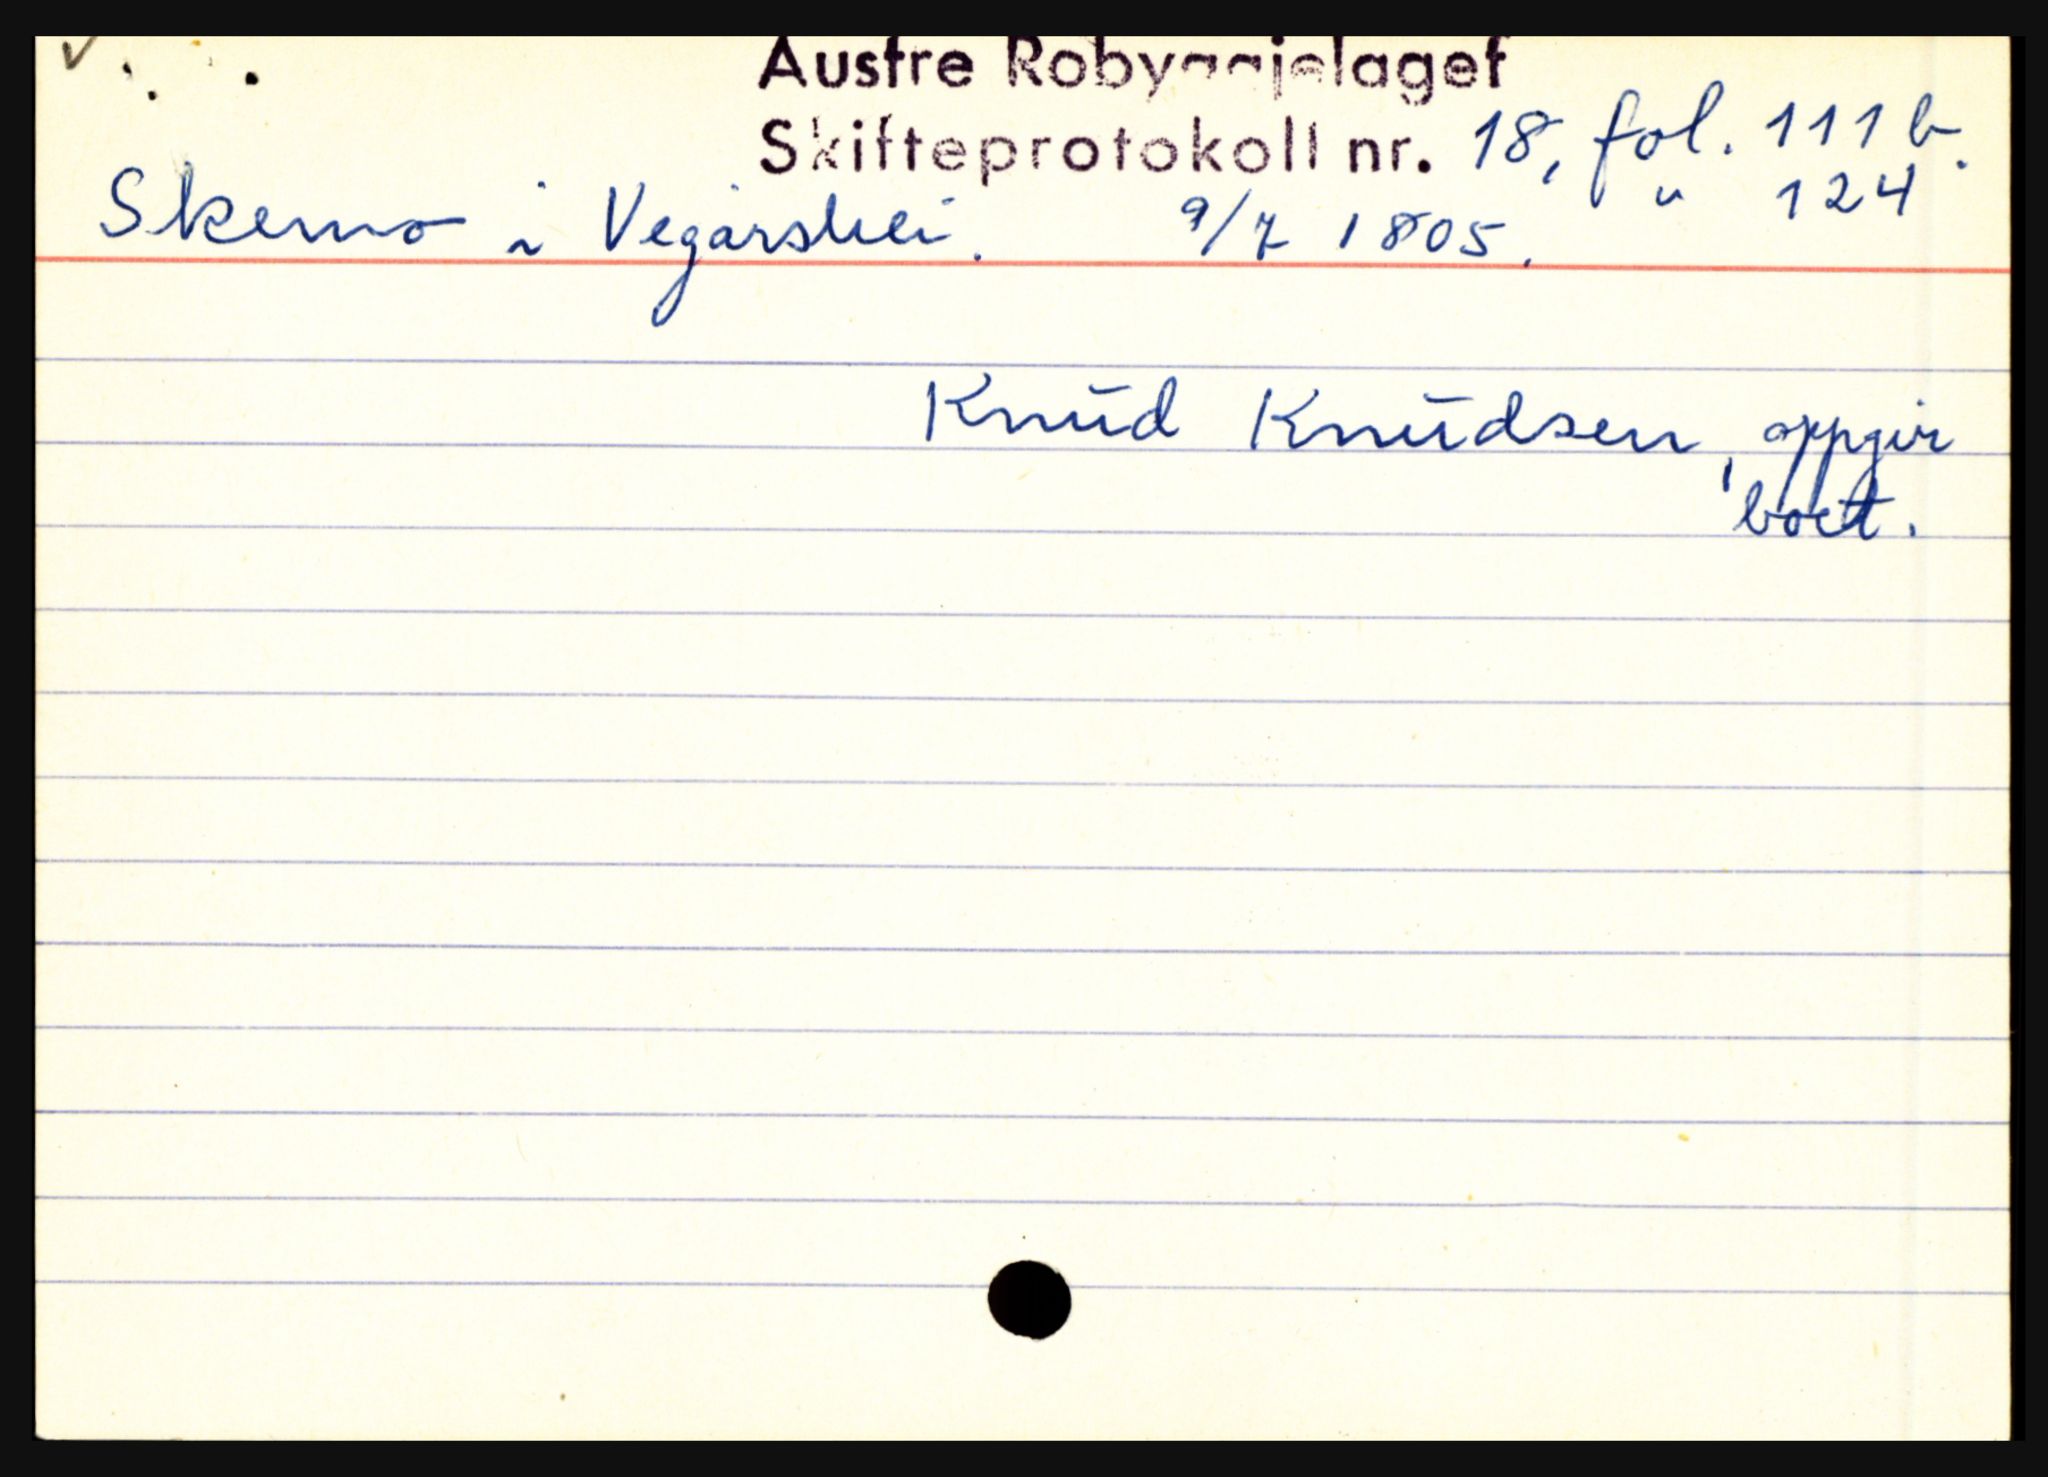 Austre Robyggjelaget
Skifteprotokoll nr. 18, fol. 111 b.
" 124
Skemo i Vegårshei. 9/7 1805.
Knud Knudsen, oppgir
boet.